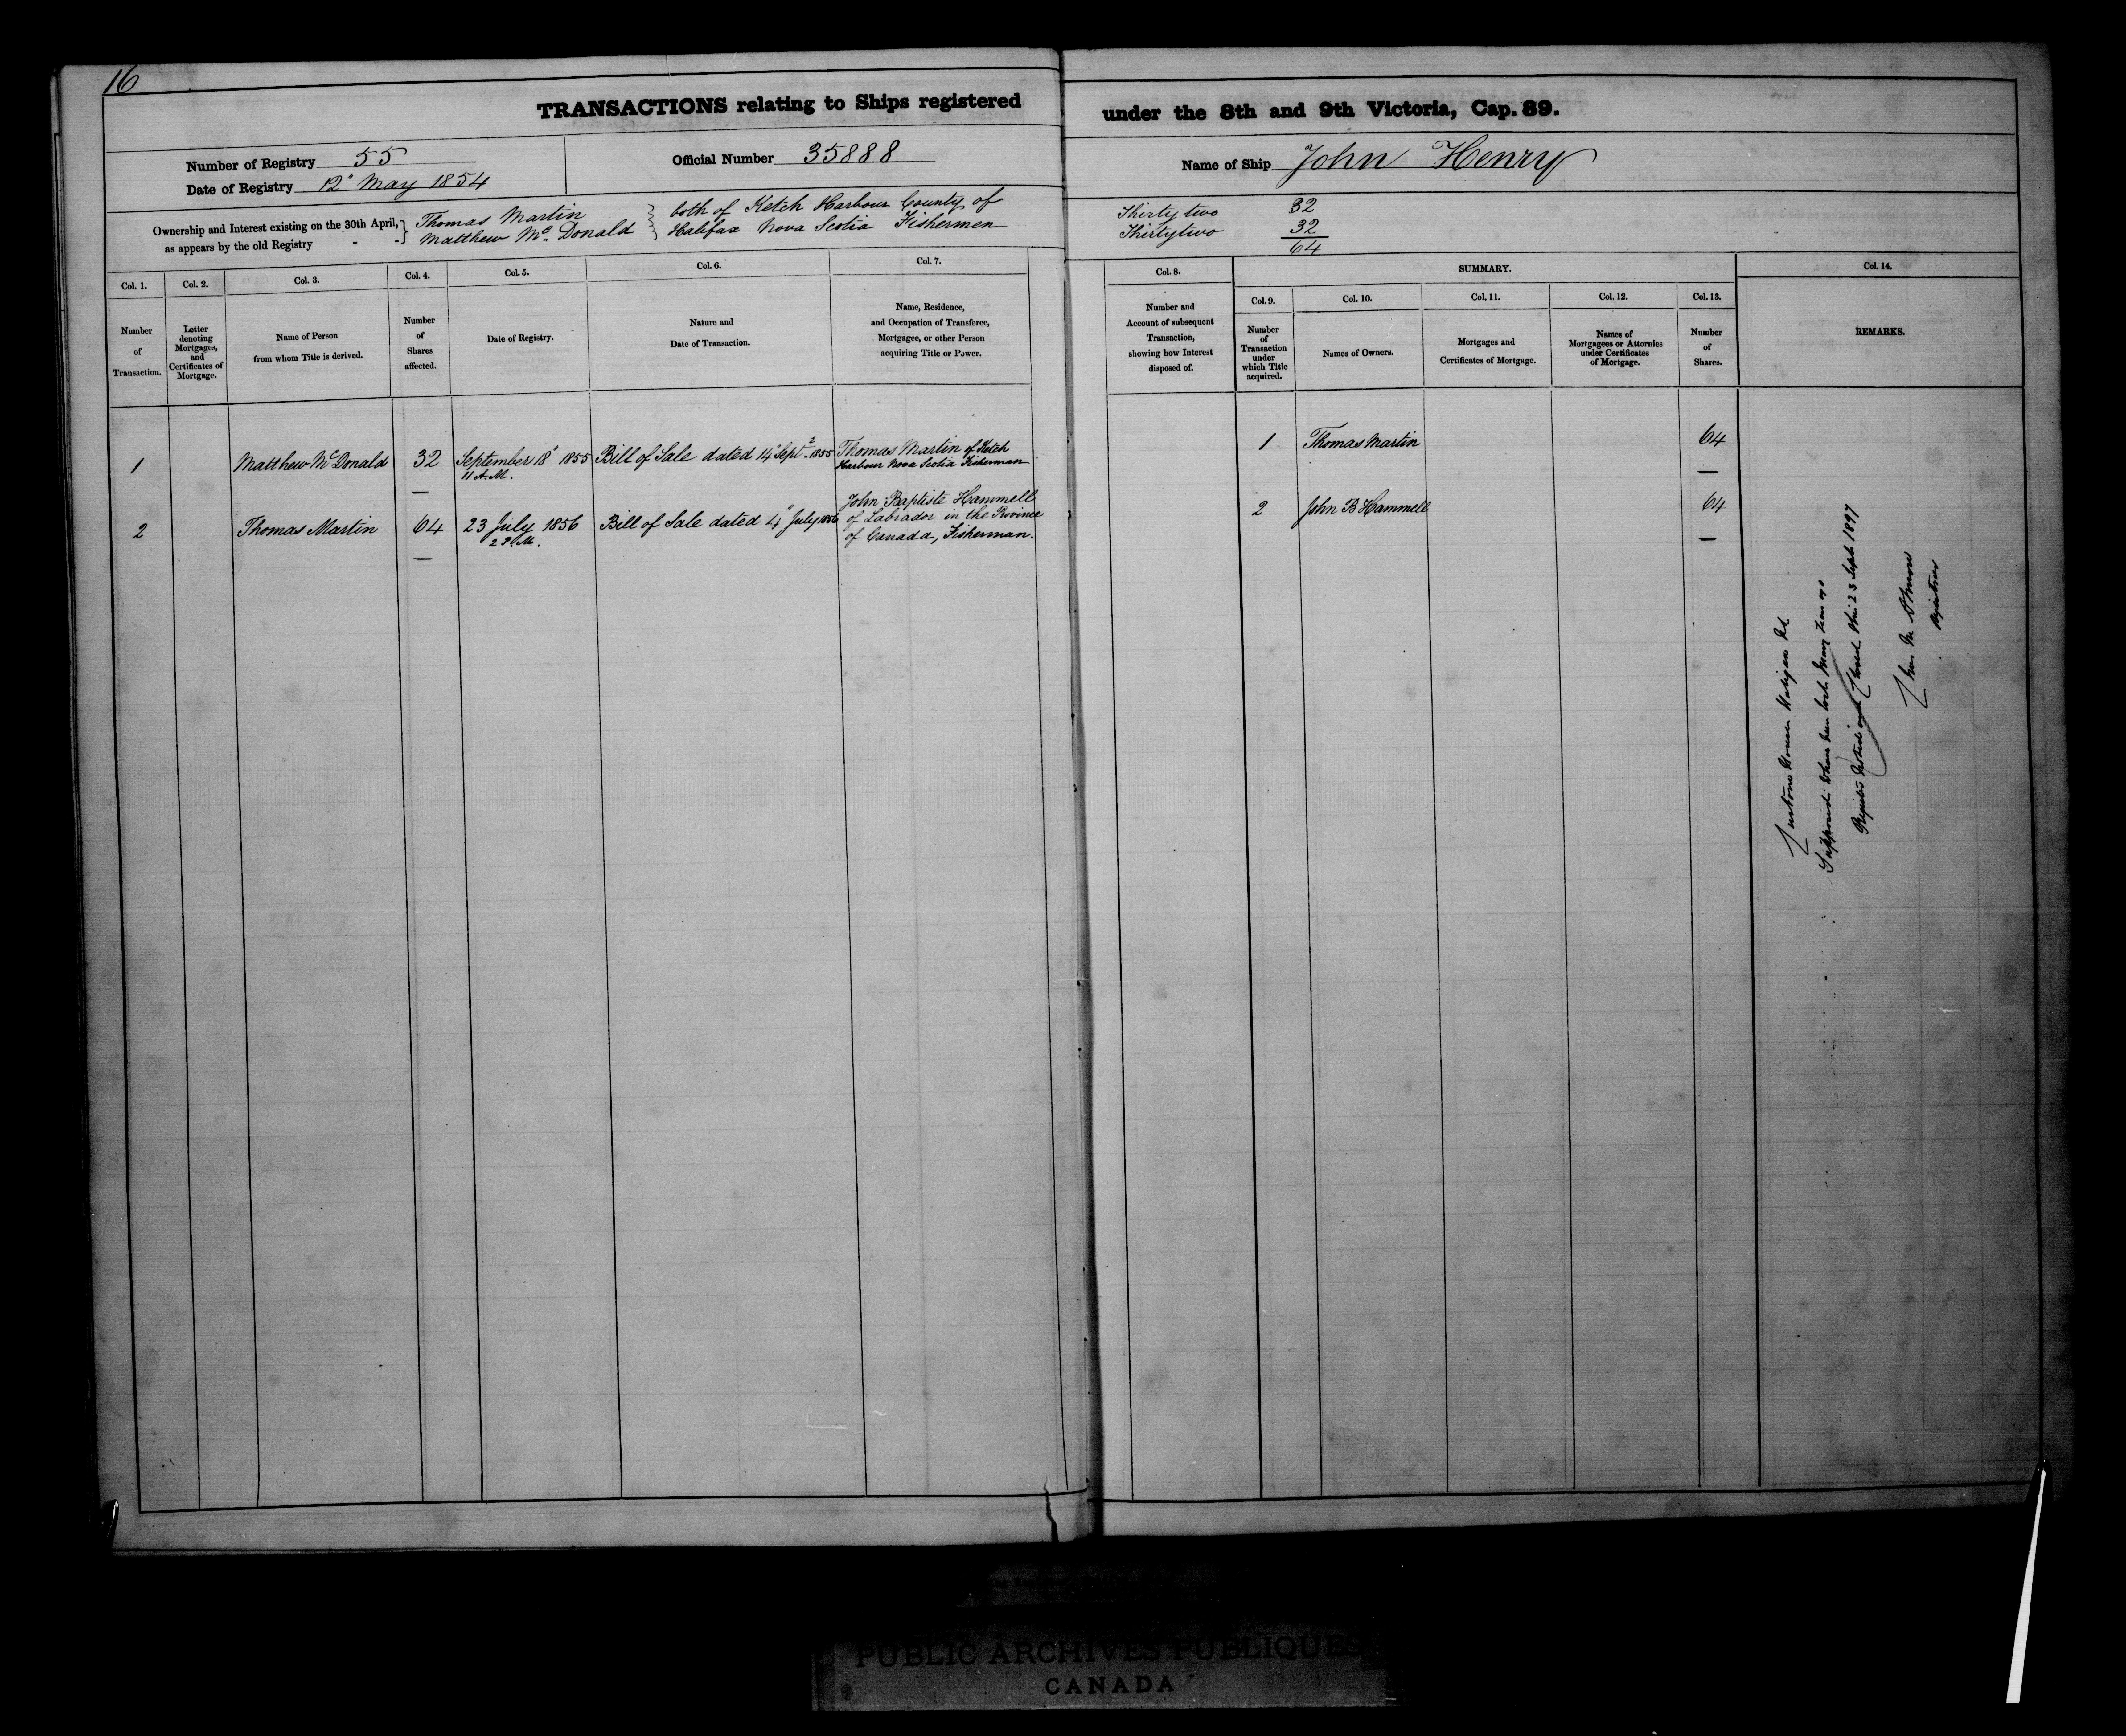 16
TRANSACTIONS relating to Ships registered under the 8th and 9th Victoria, Cap. 89.
Number of Registry 55
Date of Registry 12" May 1854
Official Number 35888
Name of Ship John Henry
Ownership and Interest existing on the 30th April,
as appears by the old Registry - -
Thomas Martin
Matthew Mc Donald
both of Ketch Harbour County of
Halifax Nova Scotia Fishermen
Thirty two 32
Thirtytwo 32
64
Col. 1.
Number
of
Transaction.
Col. 2.
Letter
denoting
Mortgages,
and
Certificates of
Mortgage.
Col. 3.
Name of Person
from whom Title is derived.
Col. 4.
Number
of
Shares
affected.
Col. 5.
Date of Registry.
Col. 6.
Nature and
Date of Transaction.
Col. 7.
Name, Residence,
and Occupation of Transferee,
Mortgagee, or other Person
acquiring Title or Power.
Col. 8.
Number and
Account of subsequent
Transaction,
showing how Interest
disposed of.
SUMMARY.
Col. 9.
Number
of
Transaction
under
which Title
acquired.
Col. 10.
Names of Owners.
Col. 11.
Mortgages and
Certificates of Mortgage.
Col. 12.
Names of
Mortgagees or Attornies
under Certificates
of Mortgage.
Col. 13.
Number
of
Shares.
Col. 14.
REMARKS.
1 Matthew Mc Donald 32 September 18" 1855 Bill of Sale dated 14" Sept. 1855 Thomas Martin of Ketch
11 A.M. Harbour Nova Scotia Fisherman
1 Thomas Martin 64
2 Thomas Martin 64 23 July 1856 Bill of Sale dated 4" July 1856 John Baptiste Hammell
2 P.M. of Labrador in the Province
of Canada, Fisherman.
2 John B Hammell 64
Customs House Halifax NS
Supposed to have been lost Many Years ago
Register closed this 23 Sept 1897
Registrar
PUBLIC ARCHIVES PUBLIQUES
CANADA